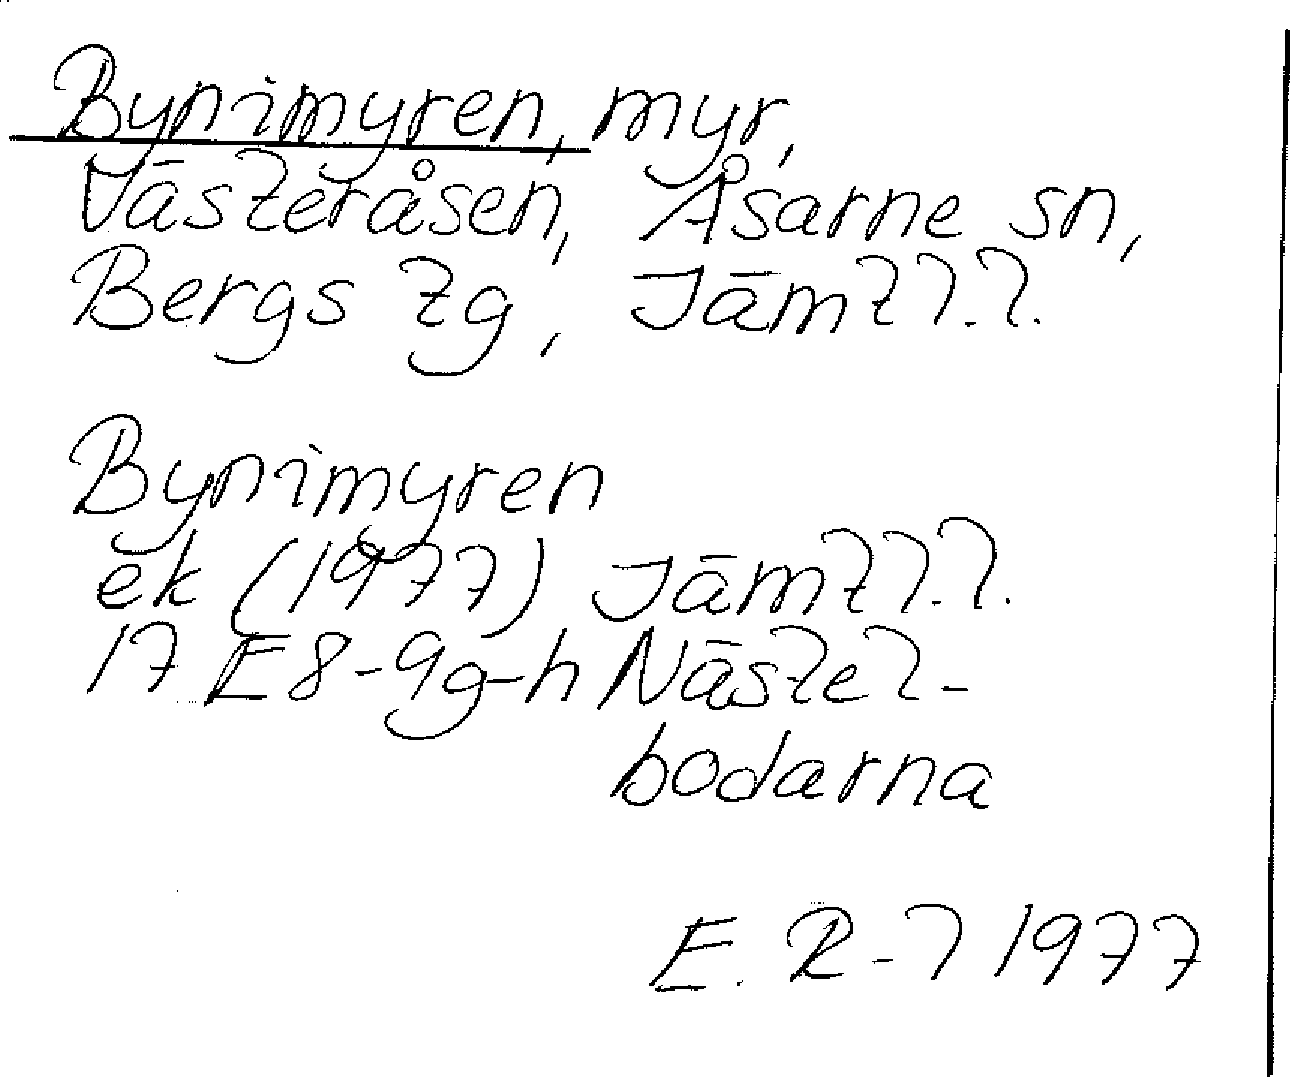 Bynimyren, myr,
Västeråsen, Åsarne sn,
Bergs tg, Jämtl.l.
Bynimyren
ek (1977) Jämtl.l.
17 E 8-9g-h Nästel-
bodarna
E. R-l 1977